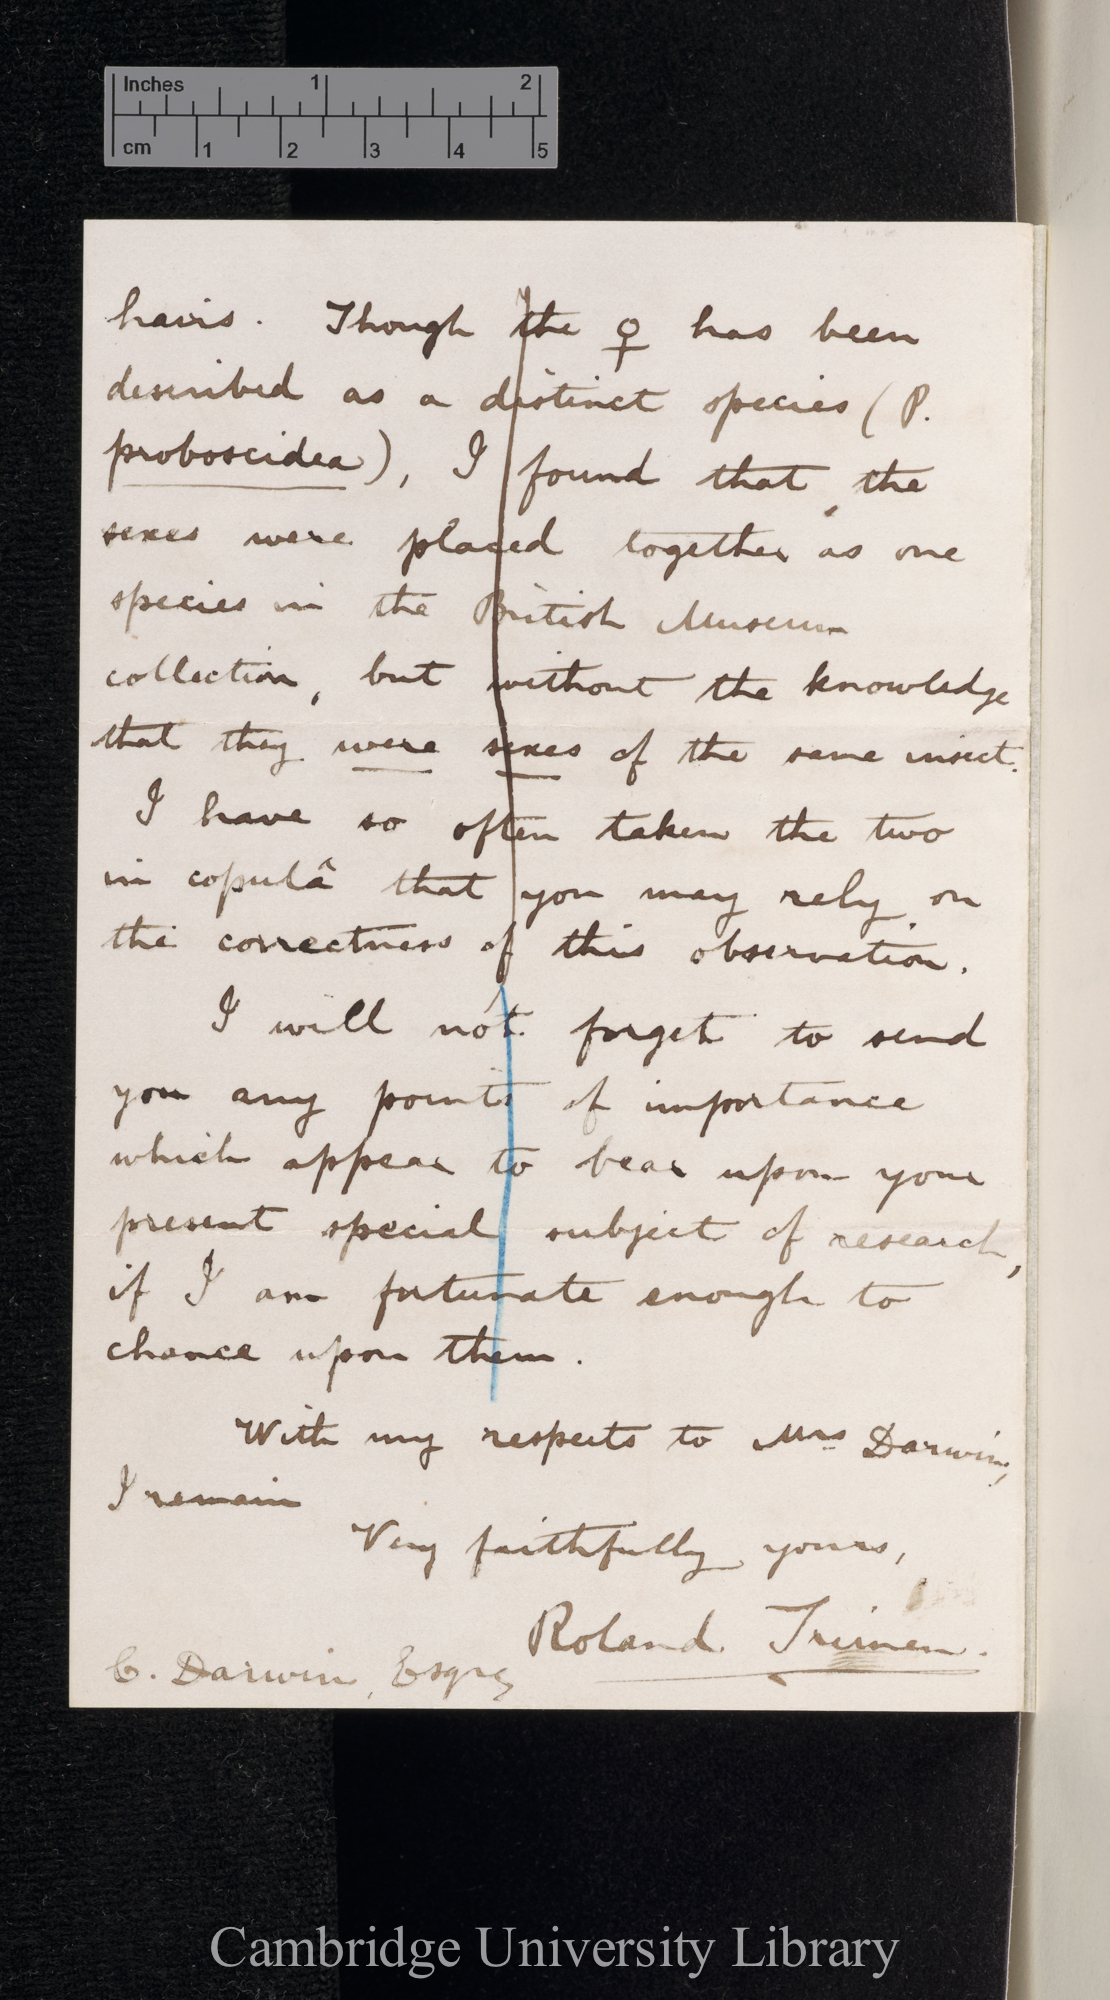 Inches 1 2
cm 1 2 3 4 5
havis. Though the ♀ has been
described as a distinct species (P.
proboscidea), I found that the
sexes were placed together as one
species in the British Museum
collection, but without the knowledge
that they were sexes of the same insect.
I have so often taken the two
in copulâ that you may rely on
the correctness of this observation.
I will not forget to send
you any points of importance
which appear to bear upon your
present special subject of research,
if I am fortunate enough to
chance upon them.
With my respects to Mrs Darwin,
I remain
Very faithfully yours,
Roland Trimen.
C. Darwin, Esqre
Cambridge University Library